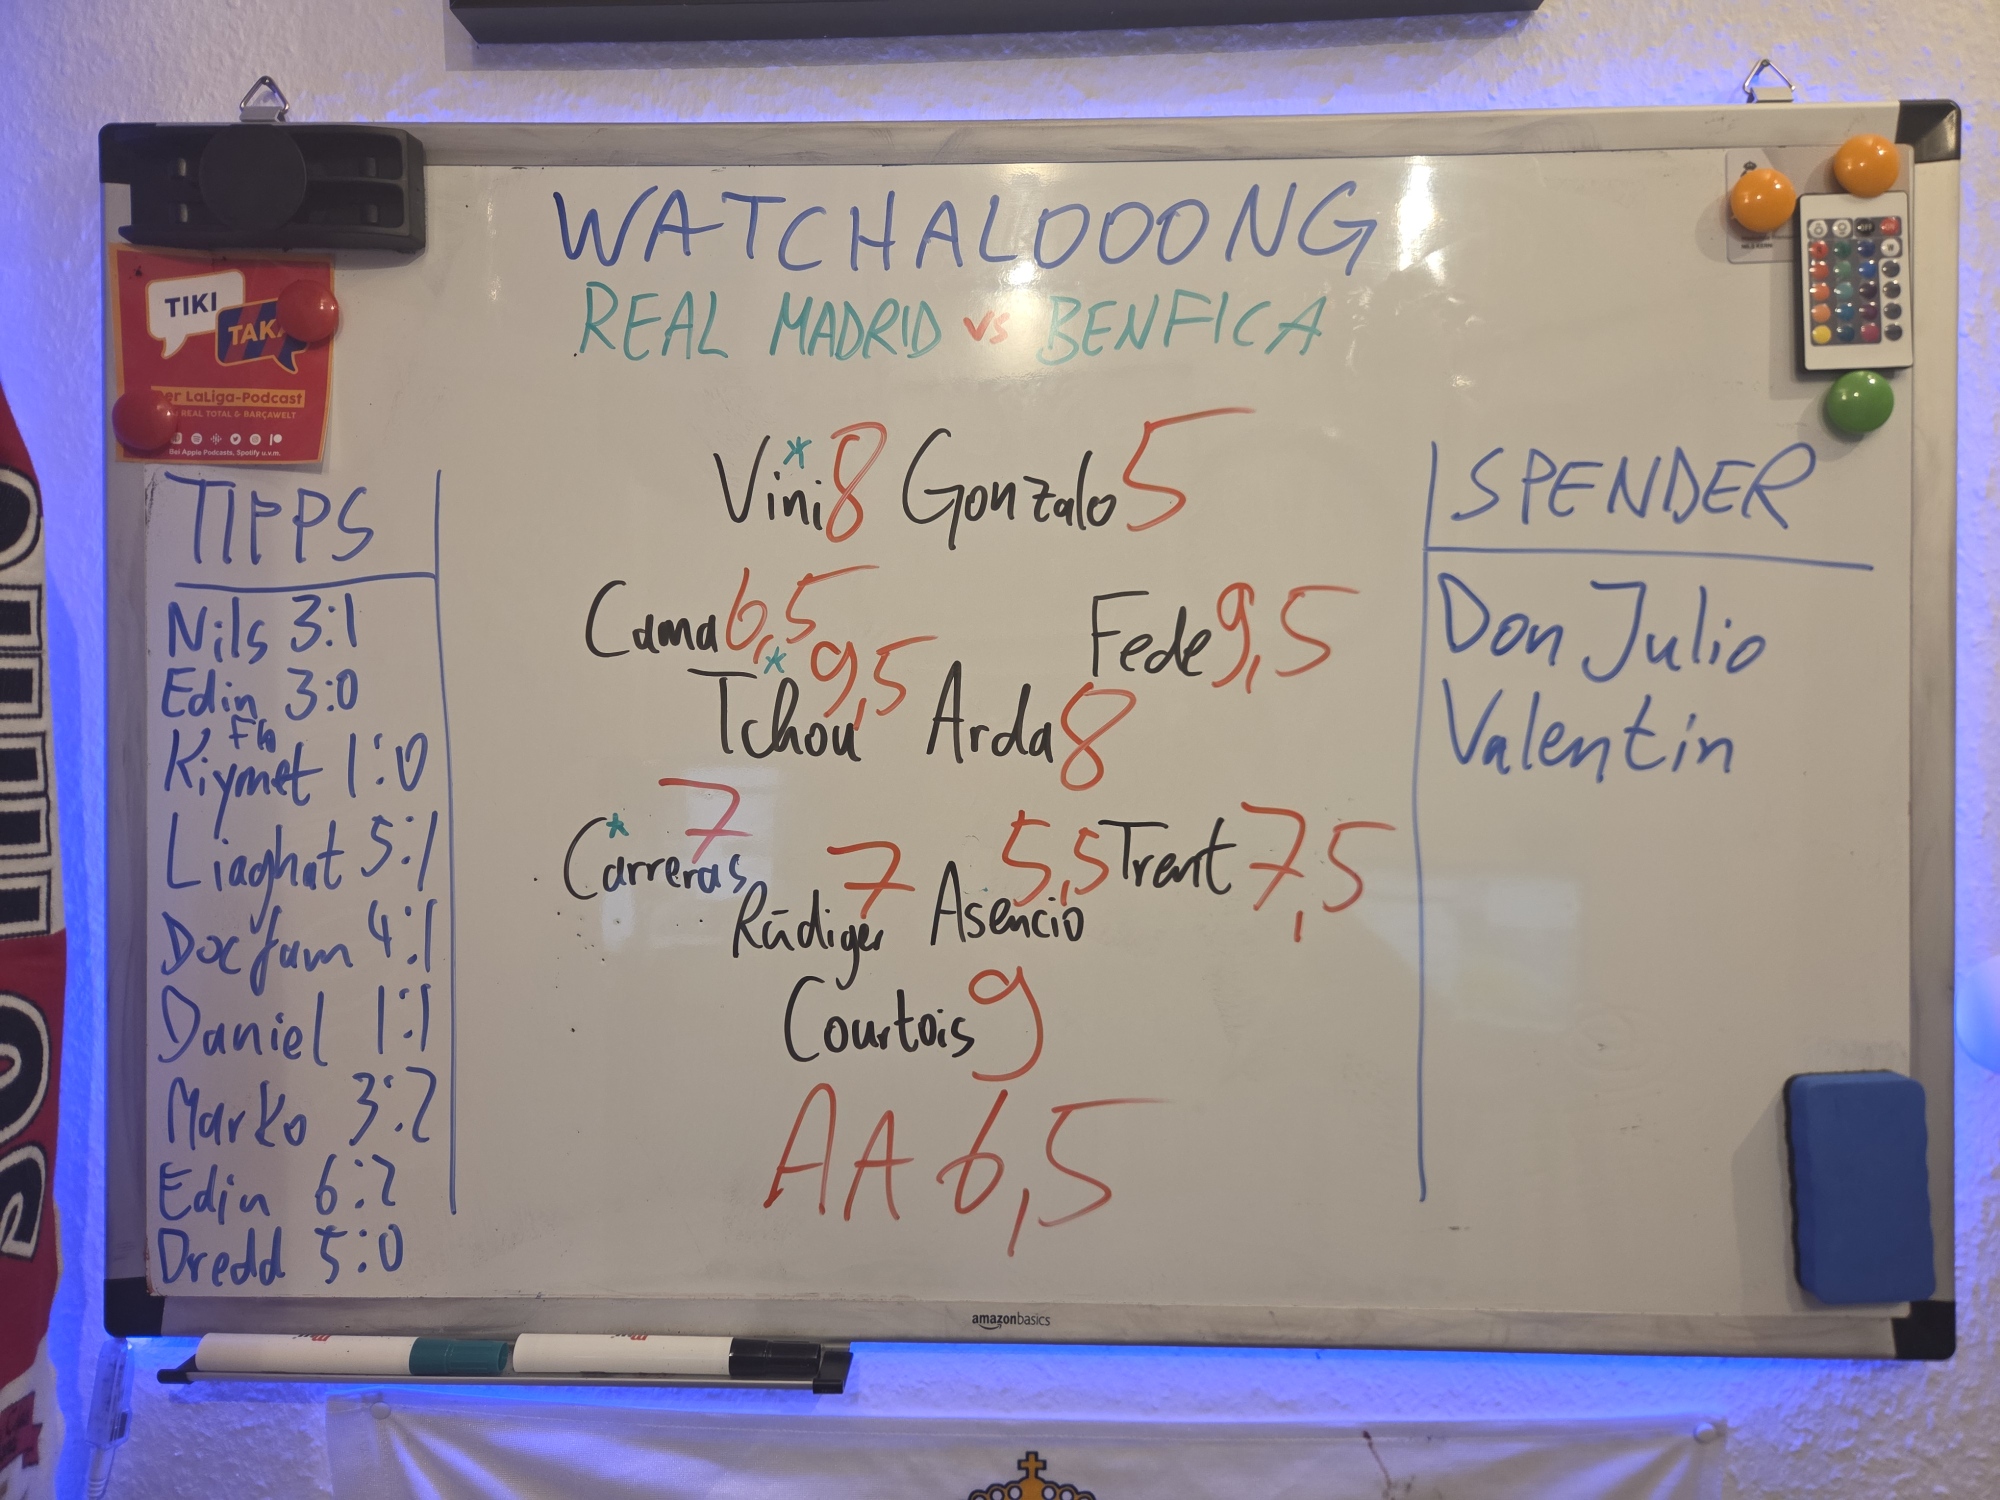 WATCHALOOONG
REAL MADRID vs BENFICA
TIKI
TAKA
er LaLiga-Podcast
REAL TOTAL & BARÇAWELT
Bei Apple Podcasts, Spotify u.v.m.
TIPPS
Nils 3:1
Edin 3:0
Flo
Kiymet 1:0
Liaghat 5:1
Docfam 4:1
Daniel 1:1
Marko 3:2
Edin 6:2
Dredd 5:0
Vini* 8 Gonzalo 5
Cama 6,5 Fede 9,5
Tchou* 9,5 Arda 8
Carreras* 7 Rüdiger 7 Asencio 5,5 Trent 7,5
Courtois 9
AA 6,5
SPENDER
Don Julio
Valentin
OFF
W
amazonbasics